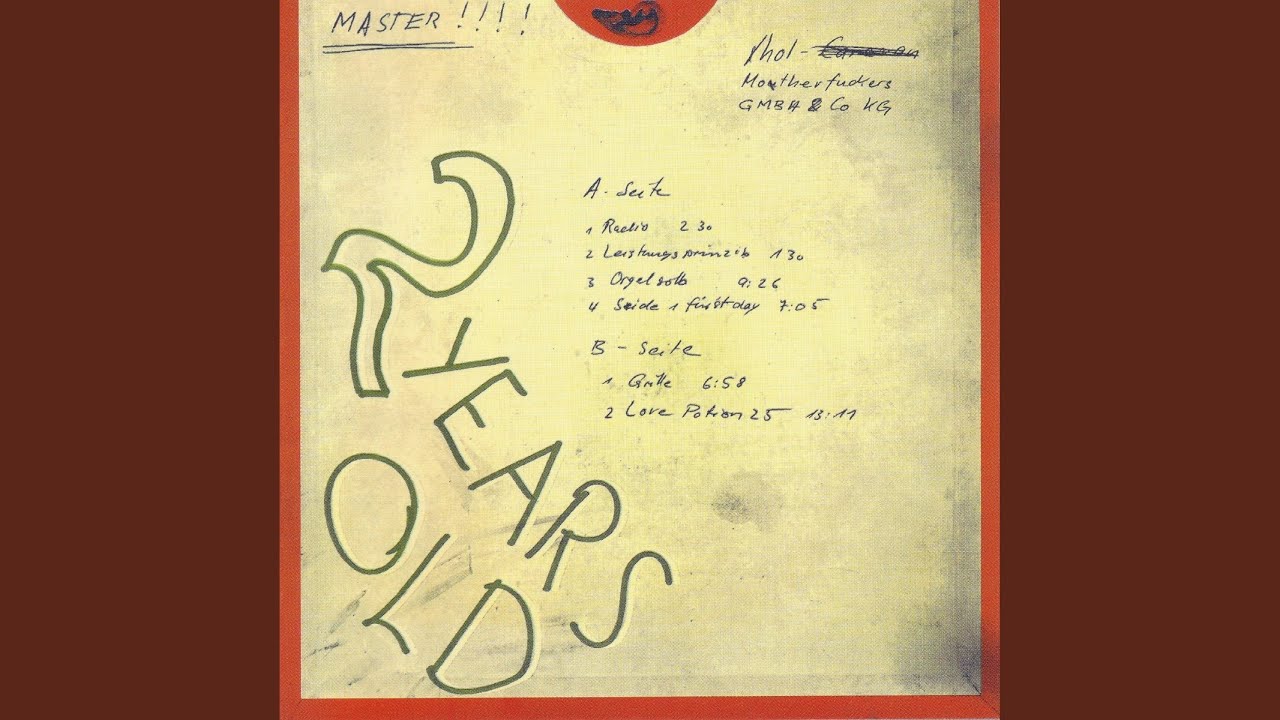 MASTER !!!!
Xhol - Caravan
Moutherfuckers
GMBH & Co KG
2 YEARS OLD
A - Seite
1 Radio 2 30
2 Leistungsprinzib 1 30
3 Orgelsolo 9:26
4 Seide 1 first day 7:05
B - Seite
1 Grille 6:58
2 Love Potion 25 13:11